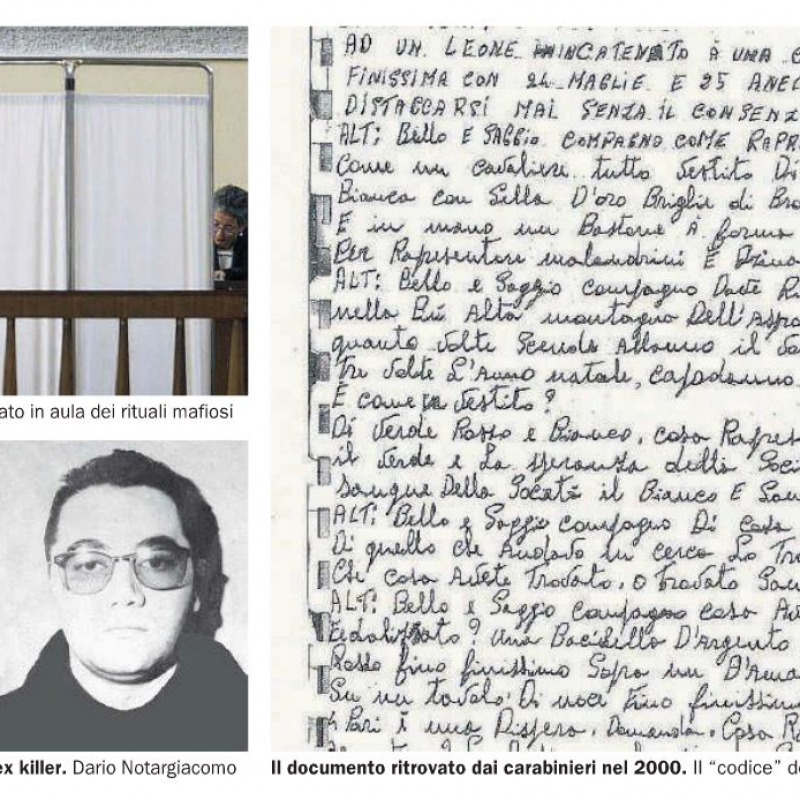 AD UN LEONE INCATENATO A UNA
FINISSIMA CON 24 MAGLIE E 25 ANEL
DISTACCARSI MAI SENZA IL CONSENZ
ALT; Bello E SAGGIO COMPAGNO COME RAPR
Come un cavaliere tutto Vestito Di
Bianca con Sella D'oro Briglie di Bro
E in mano un Bastone A forma
Per Rapresentare malandrini E
ALT; Bello e Saggio compagno Dove Ri
nella Piú Alta montagna Dell'Aspro
quante volte Scende Allanno il
Tre Volte L'Anno natale, capodanno
E come in Vestito?
Di Verde Rosso e Bianco, cosa Rapres
il Verde e La speranza della Soci
Sangue Della Società il Bianco E
ALT; Bello e Saggio compagno Di cosa
Di quello che Andavo in cerca
Che cosa Avete Trovato, o Trovato
ALT; Bello e Saggio compagno cosa
? una Bacinella D'Argento
Rosso fino finissimo Sopra un
Su un tavolo Di noce fino finissim
Domanda, Cosa
ato in aula dei rituali mafiosi
ex killer. Dario Notargiacomo
Il documento ritrovato dai carabinieri nel 2000. Il “codice” de